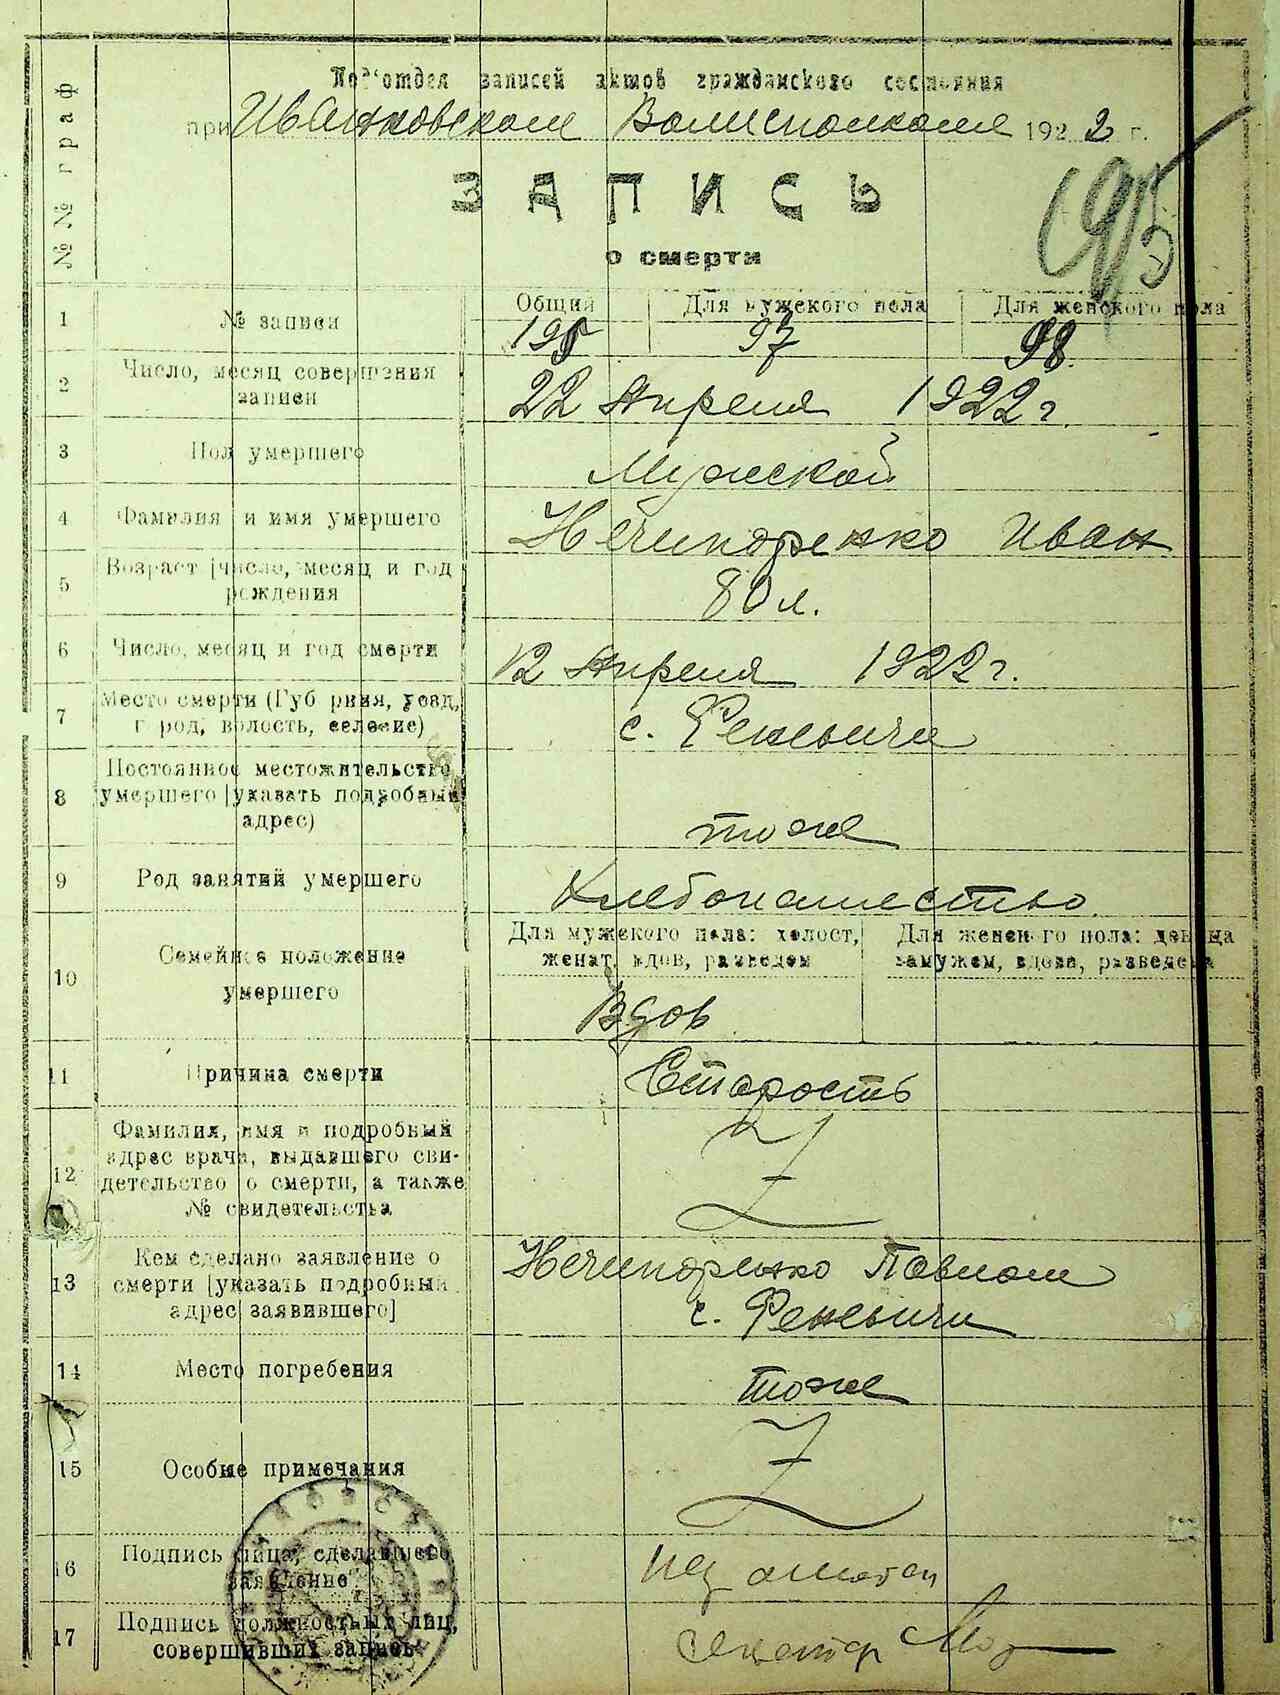 №№ граф
Под'отдел записей актов гражданского состояния
при Иванковском Волисполкоме 1922 г.
195
ЗАПИСЬ
о смерти
1 № записи
Общий Для мужского пола Для женского пола
195 97 98
2 Число, месяц совершения
записи
22 Апреля 1922 г.
3 Пол умершего
Мужской
4 Фамилия и имя умершего
Нечипоренко Иван
5 Возраст [число, месяц и год
рождения
80 л.
6 Число, месяц и год смерти
12 Апреля 1922 г.
7 Место смерти (Губерния, уезд,
город, волость, селение)
с. Феневичи
8 Постоянное местожительство
умершего [указать подробный
адрес)
тоже
9 Род занятий умершего
Хлебопашество
10 Семейное положение
умершего
Для мужского пола: холост,
женат, вдов, разведен
Для женского пола: девица
замужем, вдова, разведена
Вдов
11 Причина смерти
Старость
12 Фамилия, имя и подробный
адрес врача, выдавшего сви-
детельство о смерти, а также
№ свидетельства
13 Кем сделано заявление о
смерти [указать подробный
адрес заявившего]
Нечипоренко Павлом
с. Феневичи
14 Место погребения
тоже
15 Особые примечания
16 Подпись лица, сделавшего
заявление
17 Подпись должностных лиц,
совершивших запись